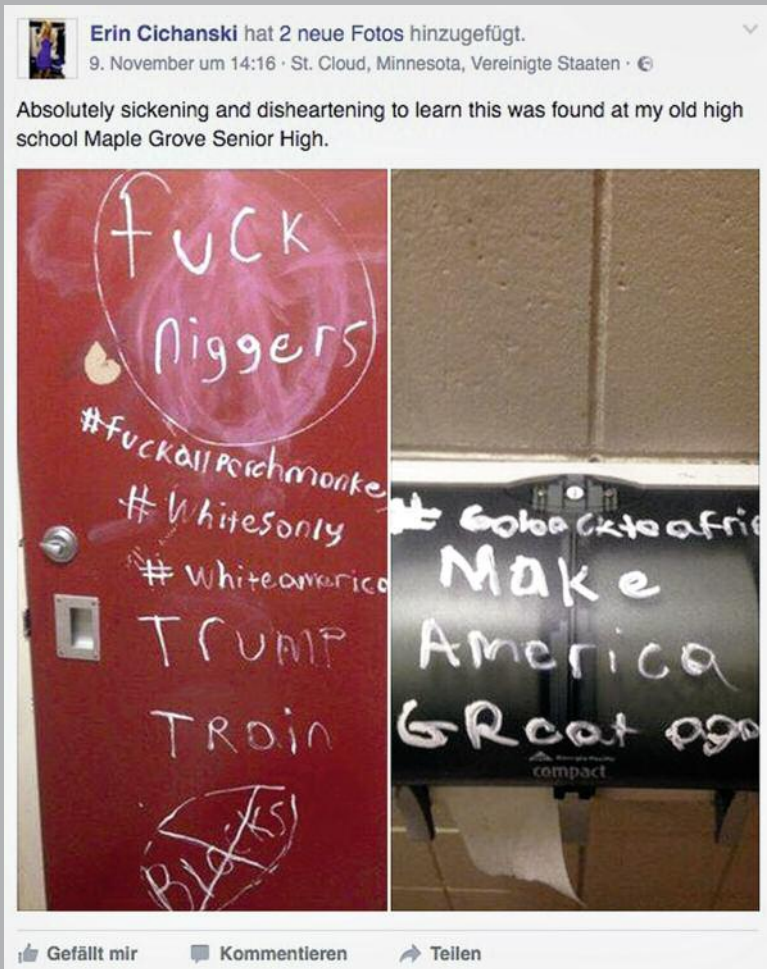 Erin Cichanski hat 2 neue Fotos hinzugefügt.
9. November um 14:16 · St. Cloud, Minnesota, Vereinigte Staaten ·
Absolutely sickening and disheartening to learn this was found at my old high
school Maple Grove Senior High.
fuck
niggers
#fuckallporchmonke
# Whitesonly
# whiteamerica
TRUMP
TRain
BLacKS
# Gobacktoafric
Make
America
GReat aga
compact
Gefällt mir
Kommentieren
Teilen